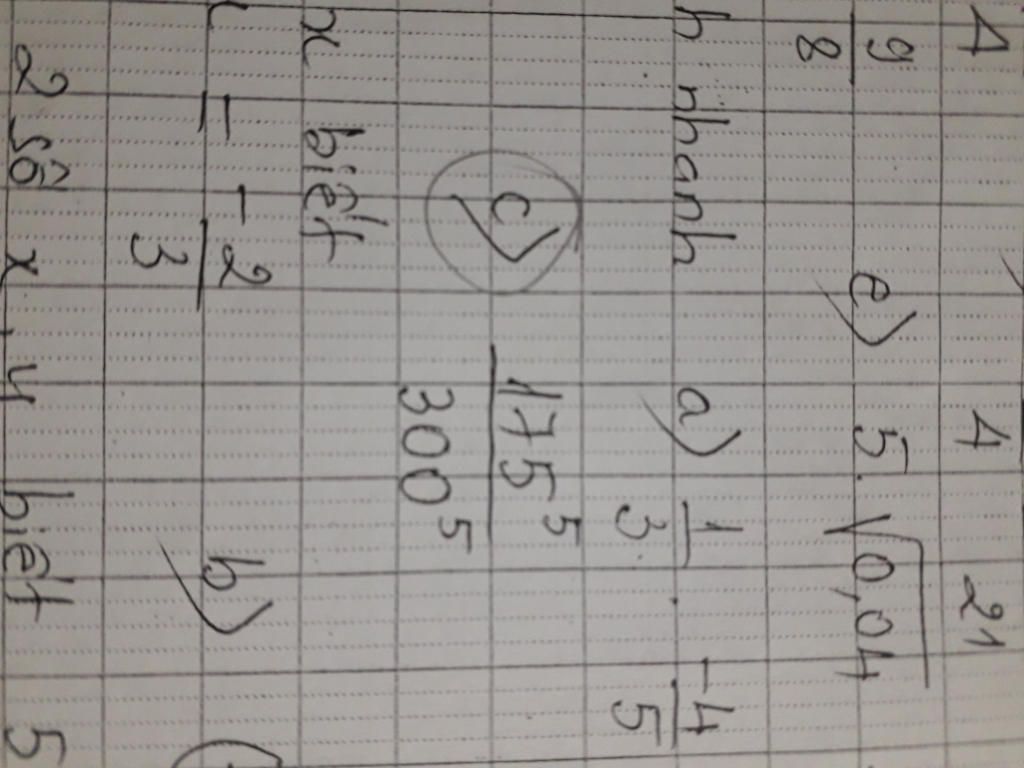 4 4 21
9/8 e) 5.√0,04
h nhanh a) 1/3 . -4/5
c) 175⁵/300⁵
x biết
= -2/3 b)
2 số x, y biết 5